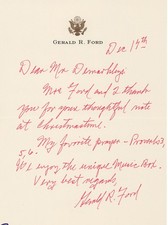 GERALD R. FORD
Dec 17th
Dear Mr.
Mrs Ford and I thank
you for your thoughtful note
at Christmastime.
My favorite prayer - Proverbs 3,
5,6.
We enjoy the unique Music Box.
Very best regards,
Gerald R. Ford